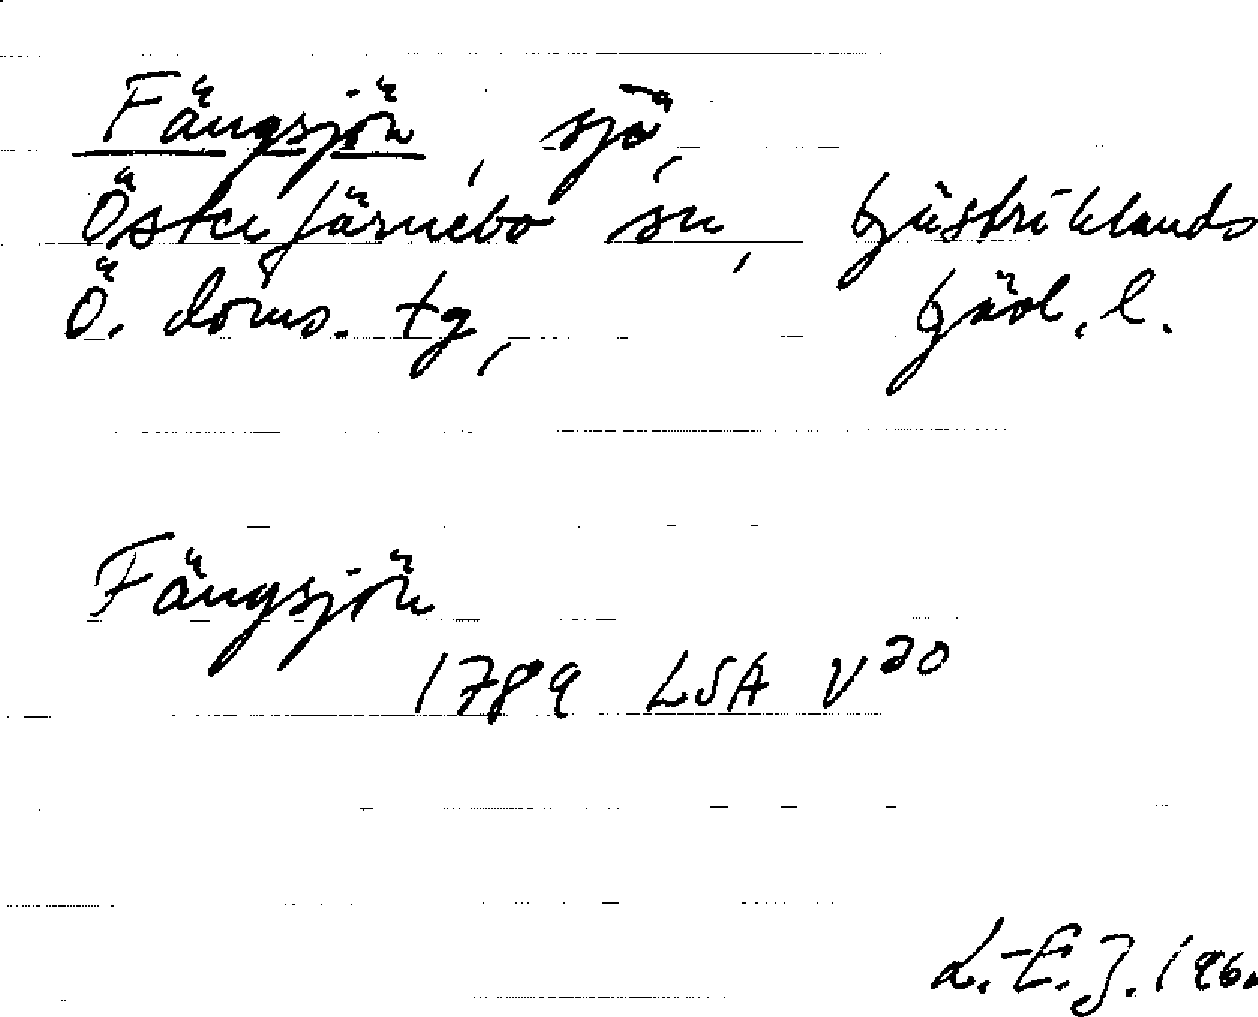 Fängsjön, sjö,
Österfärnebo sn, Gästriklands
Ö. doms. tg, Gävl. l.
Fängsjön
1789 LSA V20
L.-E. J. 196